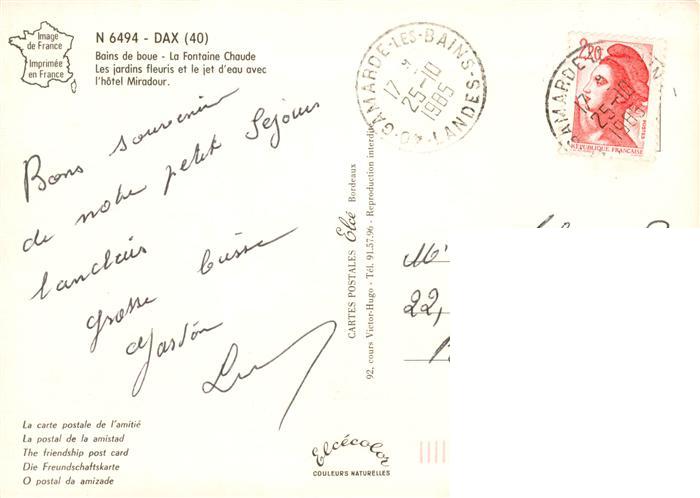 Image
de France
Imprimée
en France
N 6494 - DAX (40)
Bains de boue - La Fontaine Chaude
Les jardins fleuris et le jet d'eau avec
l'hôtel Miradour.
Bons souvenir
de notre petit Séjour
landais
grosse bisse
GAMARDE-LES-BAINS
17
25-10
1985
40-LANDES
2,20
REPUBLIQUE FRANÇAISE
GAMARDE
17
25-10
1985
CARTES POSTALES Elcé Bordeaux
92, cours Victor-Hugo - Tél. 91.57.96 - Reproduction interdite
22,
La carte postale de l'amitié
La postal de la amistad
The friendship post card
Die Freundschaftskarte
O postal da amizade
Elcécolor
COULEURS NATURELLES